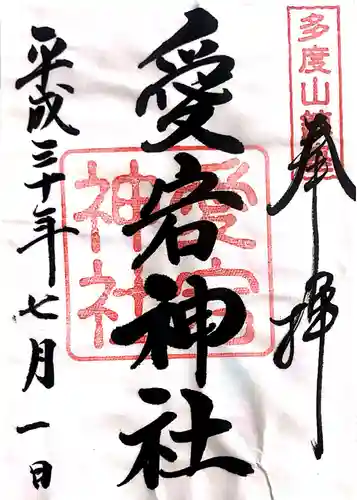 多度山
奉拝
愛宕神社
愛宕神社
平成三十年七月一日